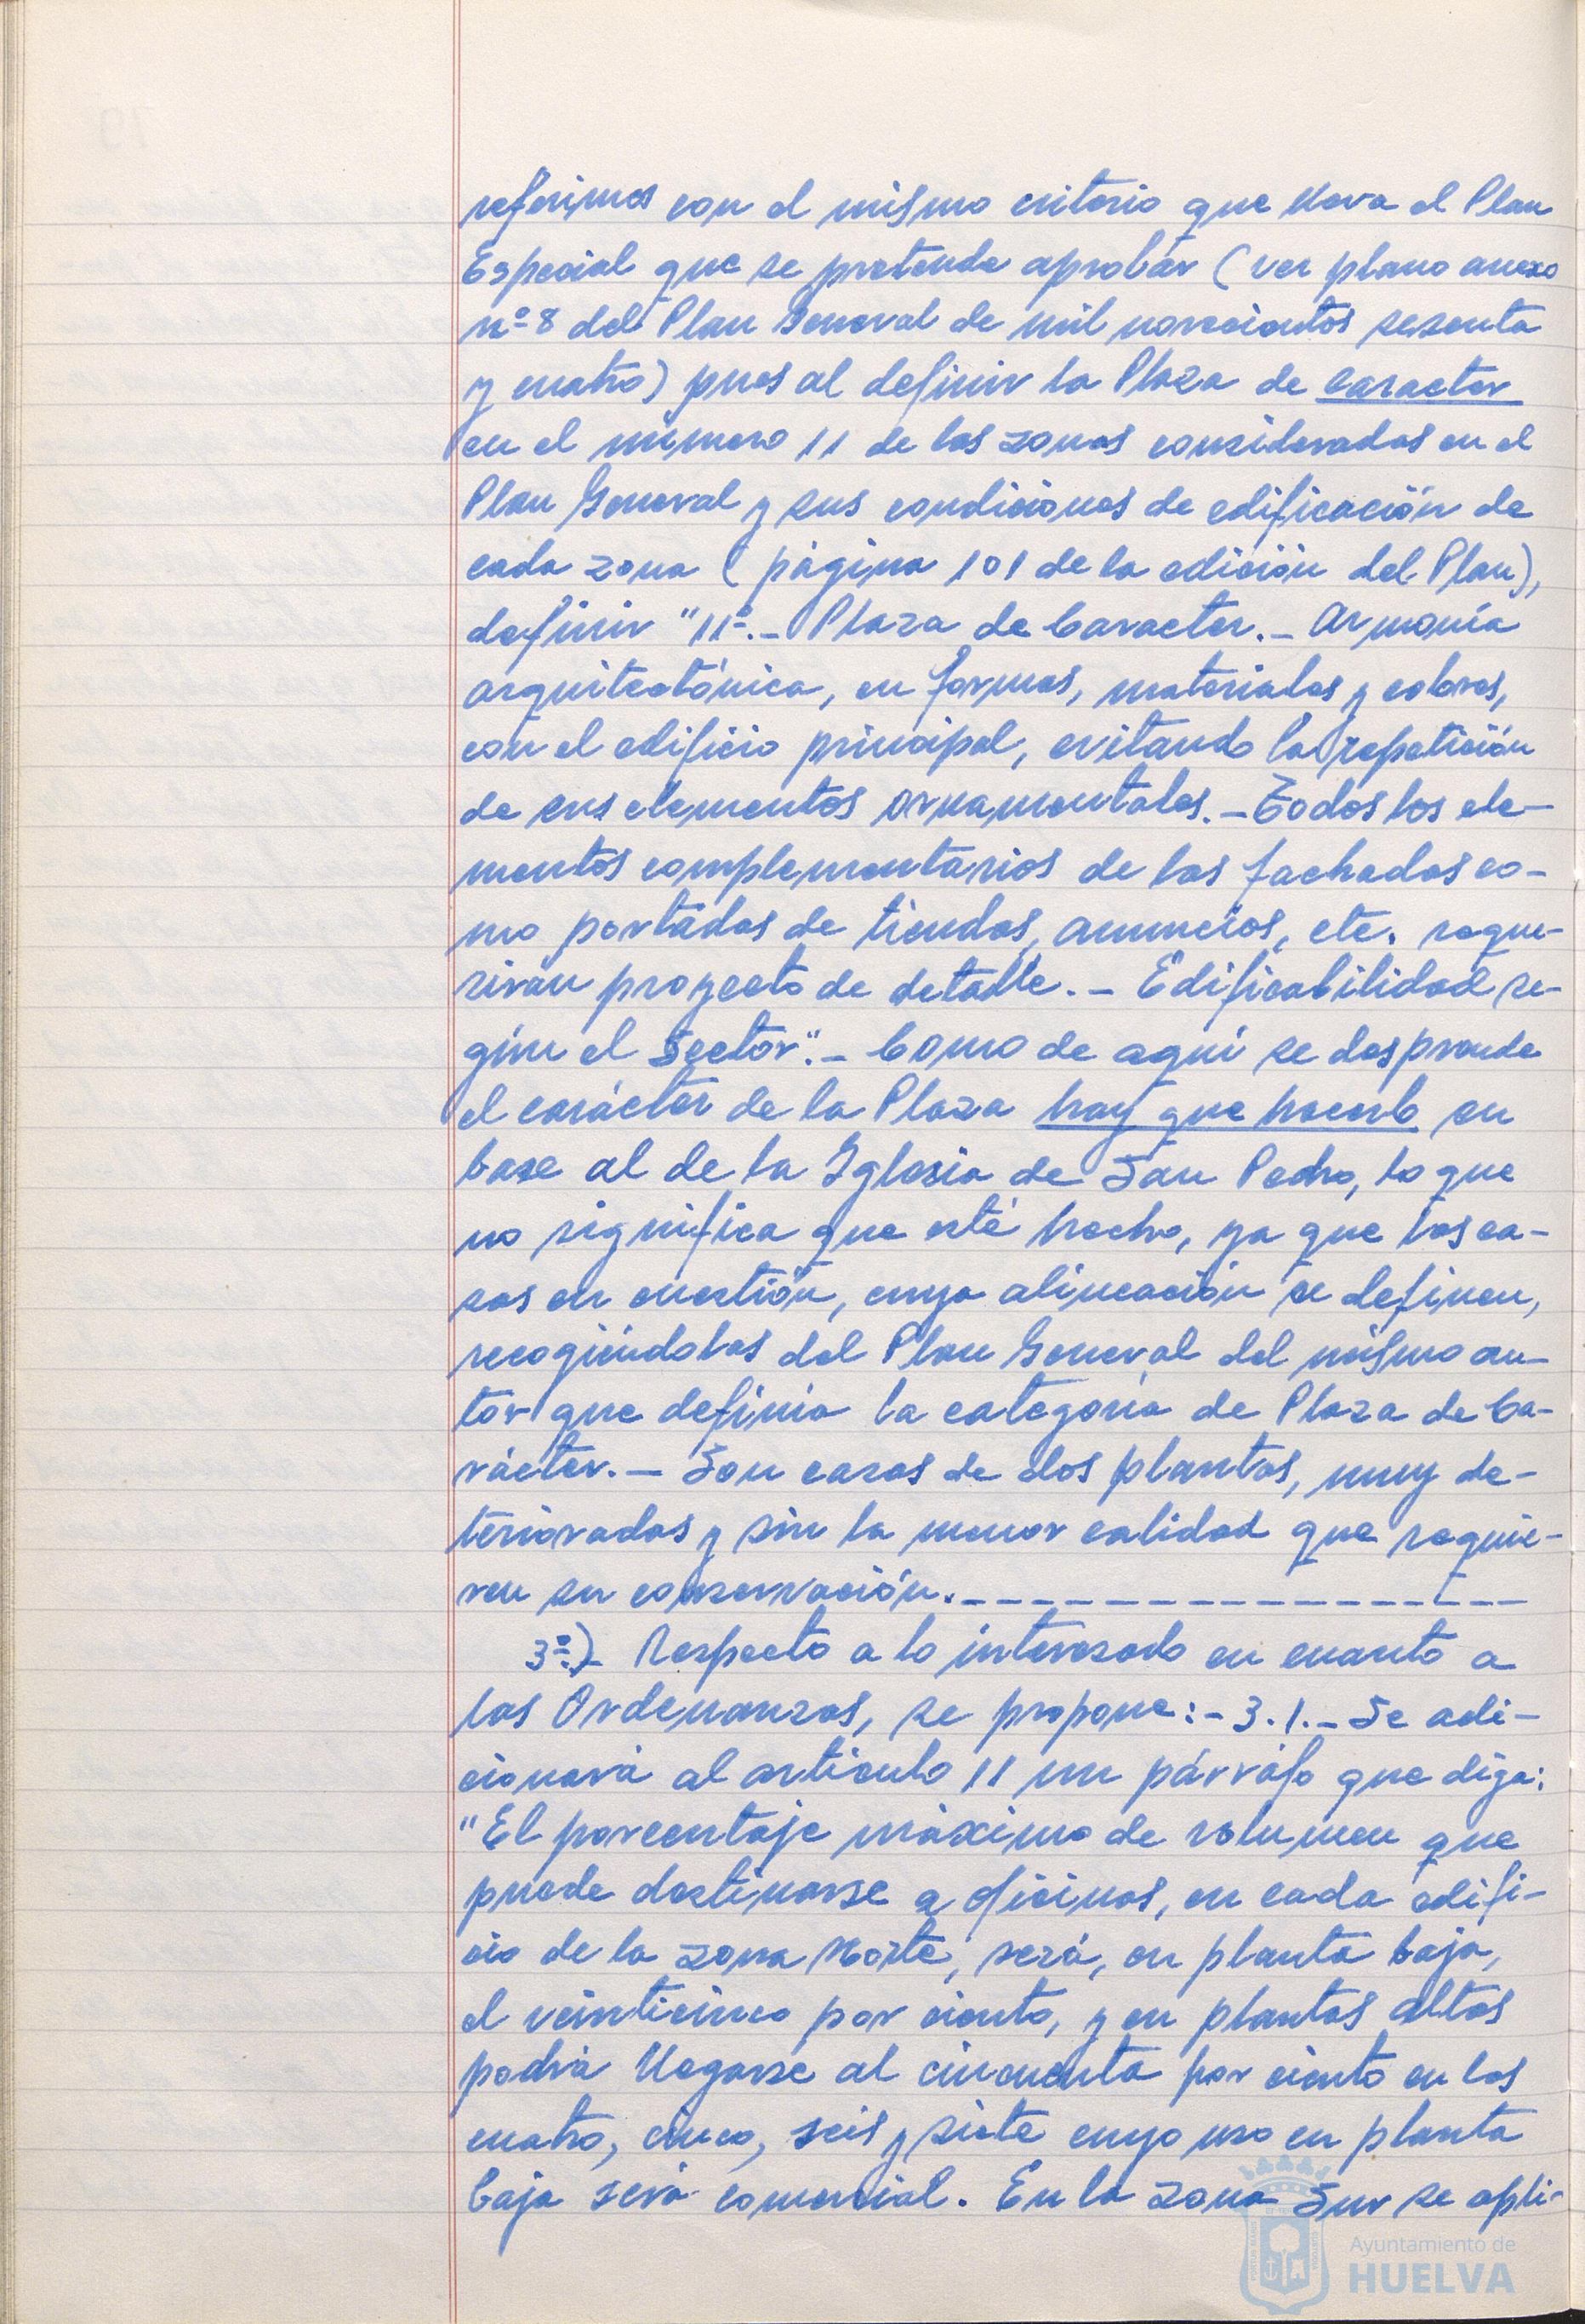 referimos con el mismo criterio que lleva el Plan
Especial que se pretende aprobar (ver plano anexo
nº 8 del Plan General de mil novecientos sesenta
y cuatro) pues al definir la Plaza de caracter
en el número 11 de las zonas consideradas en el
Plan General y sus condiciones de edificación de
cada zona (página 101 de la edición del Plan),
definir "11º.- Plaza de Caracter.- Armonía
arquitectónica, en formas, materiales y colores,
con el edificio principal, evitando la repetición
de sus elementos ornamentales.- Todos los ele-
mentos complementarios de las fachadas co-
mo portadas de tiendas, anuncios, etc. reque-
rirán proyecto de detalle.- Edificabilidad se-
gún el Sector".- Como de aquí se desprende
el carácter de la Plaza hay que hacerlo en
base al de la Iglesia de San Pedro, lo que
no significa que esté hecho, ya que las ca-
sas en cuestión, cuya alineación se definen,
recogiéndolas del Plan General del mismo au-
tor que definía la categoría de Plaza de Ca-
rácter.- Son casas de dos plantas, muy de-
terioradas y sin la menor calidad que requie-
ren su conservación.- - - - - - - - - - - - - - - -
3º.)- Respecto a lo interesado en cuanto a
las Ordenanzas, se propone:- 3.1.- Se adi-
cionará al artículo 11 un párrafo que diga:
"El porcentaje máximo de volumen que
puede destinarse a oficinas, en cada edifi-
cio de la zona Norte, será, en planta baja,
el veinticinco por ciento, y en plantas altas
podrá llegarse al cincuenta por ciento en las
cuatro, cinco, seis y siete cuyo uso en planta
baja será comercial. En la zona Sur se apli-
Ayuntamiento de
HUELVA